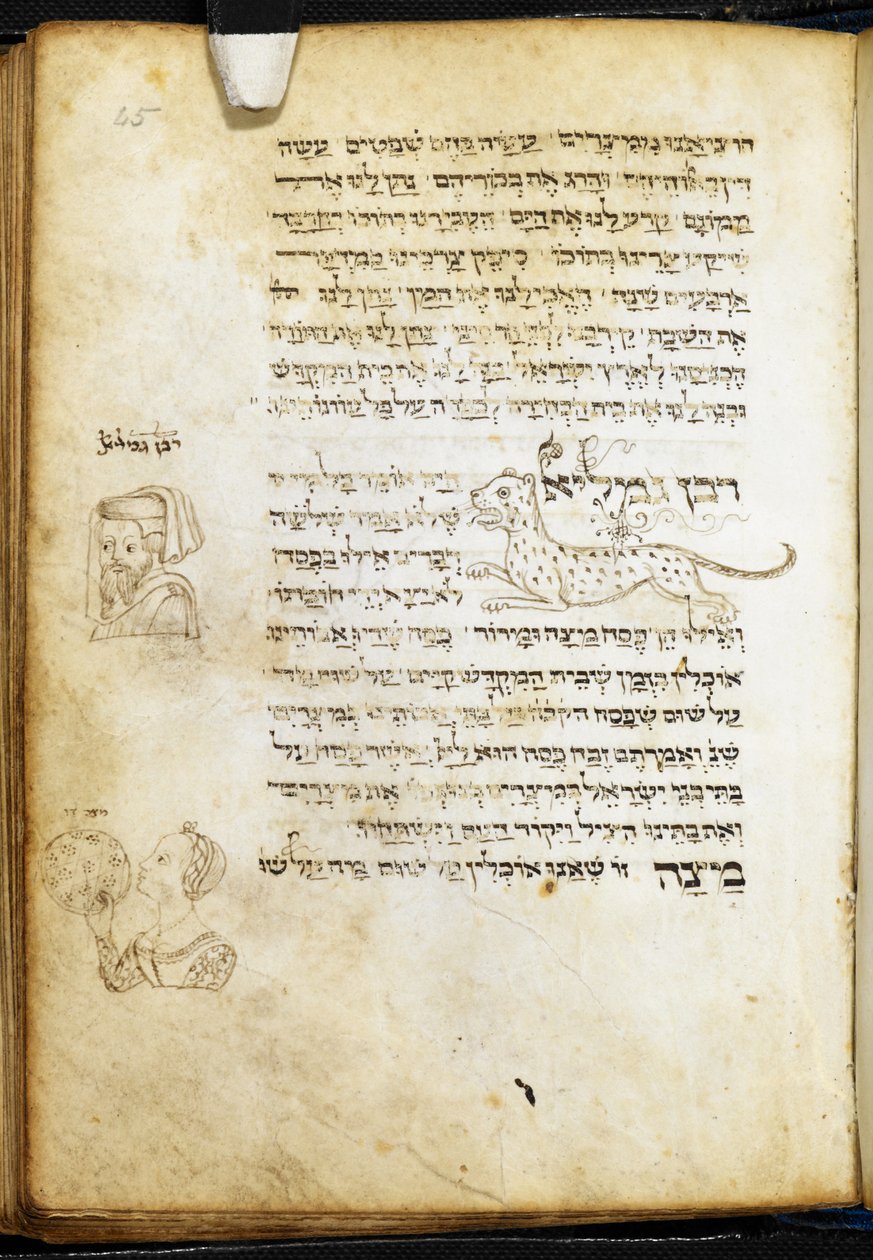 45
הוציאנו ממצרים עשה בהם שפטים עשה
דין באלהיהם והרג את בכוריהם נתן לנו את
ממונם קרע לנו את הים העבירנו בתוכו בחרבה
שיקע צרינו בתוכו סיפק צרכינו במדבר
אַרְבָּעִים שָׁנָה הֶאֱכִילָנוּ אֶת הַמָּן נָתַן לָנוּ
אֶת הַשַּׁבָּת קירבנו לפני הר סיני נתן לנו את התורה
הכניסנו לארץ ישראל בנה לנו את בית המקדש
ובנה לנו את בית הבחירה לכפר על כל עוונותינו
רבן גמליאל
רבן גמליא
היה אומר כל מי
שלא אמר שלשה
דברים אילו בפסח
לא יצא ידי חובתו
ואילו הן פסח מצה ומרור פסח שהיו אבותינו
אוכלין בזמן שבית המקדש קיים על שום מה
על שום שפסח הקבה על בתי אבותינו במצרים
שנ ואמרתם זבח פסח הוא ליי אשר פסח על
בתי בני ישראל במצרים בנגפו את מצרים
ואת בתינו הציל ויקוד העם וישתחוו
מצה זו
מַצָּה זו שֶׁאָנוּ אוֹכְלִין על שום מה על שו